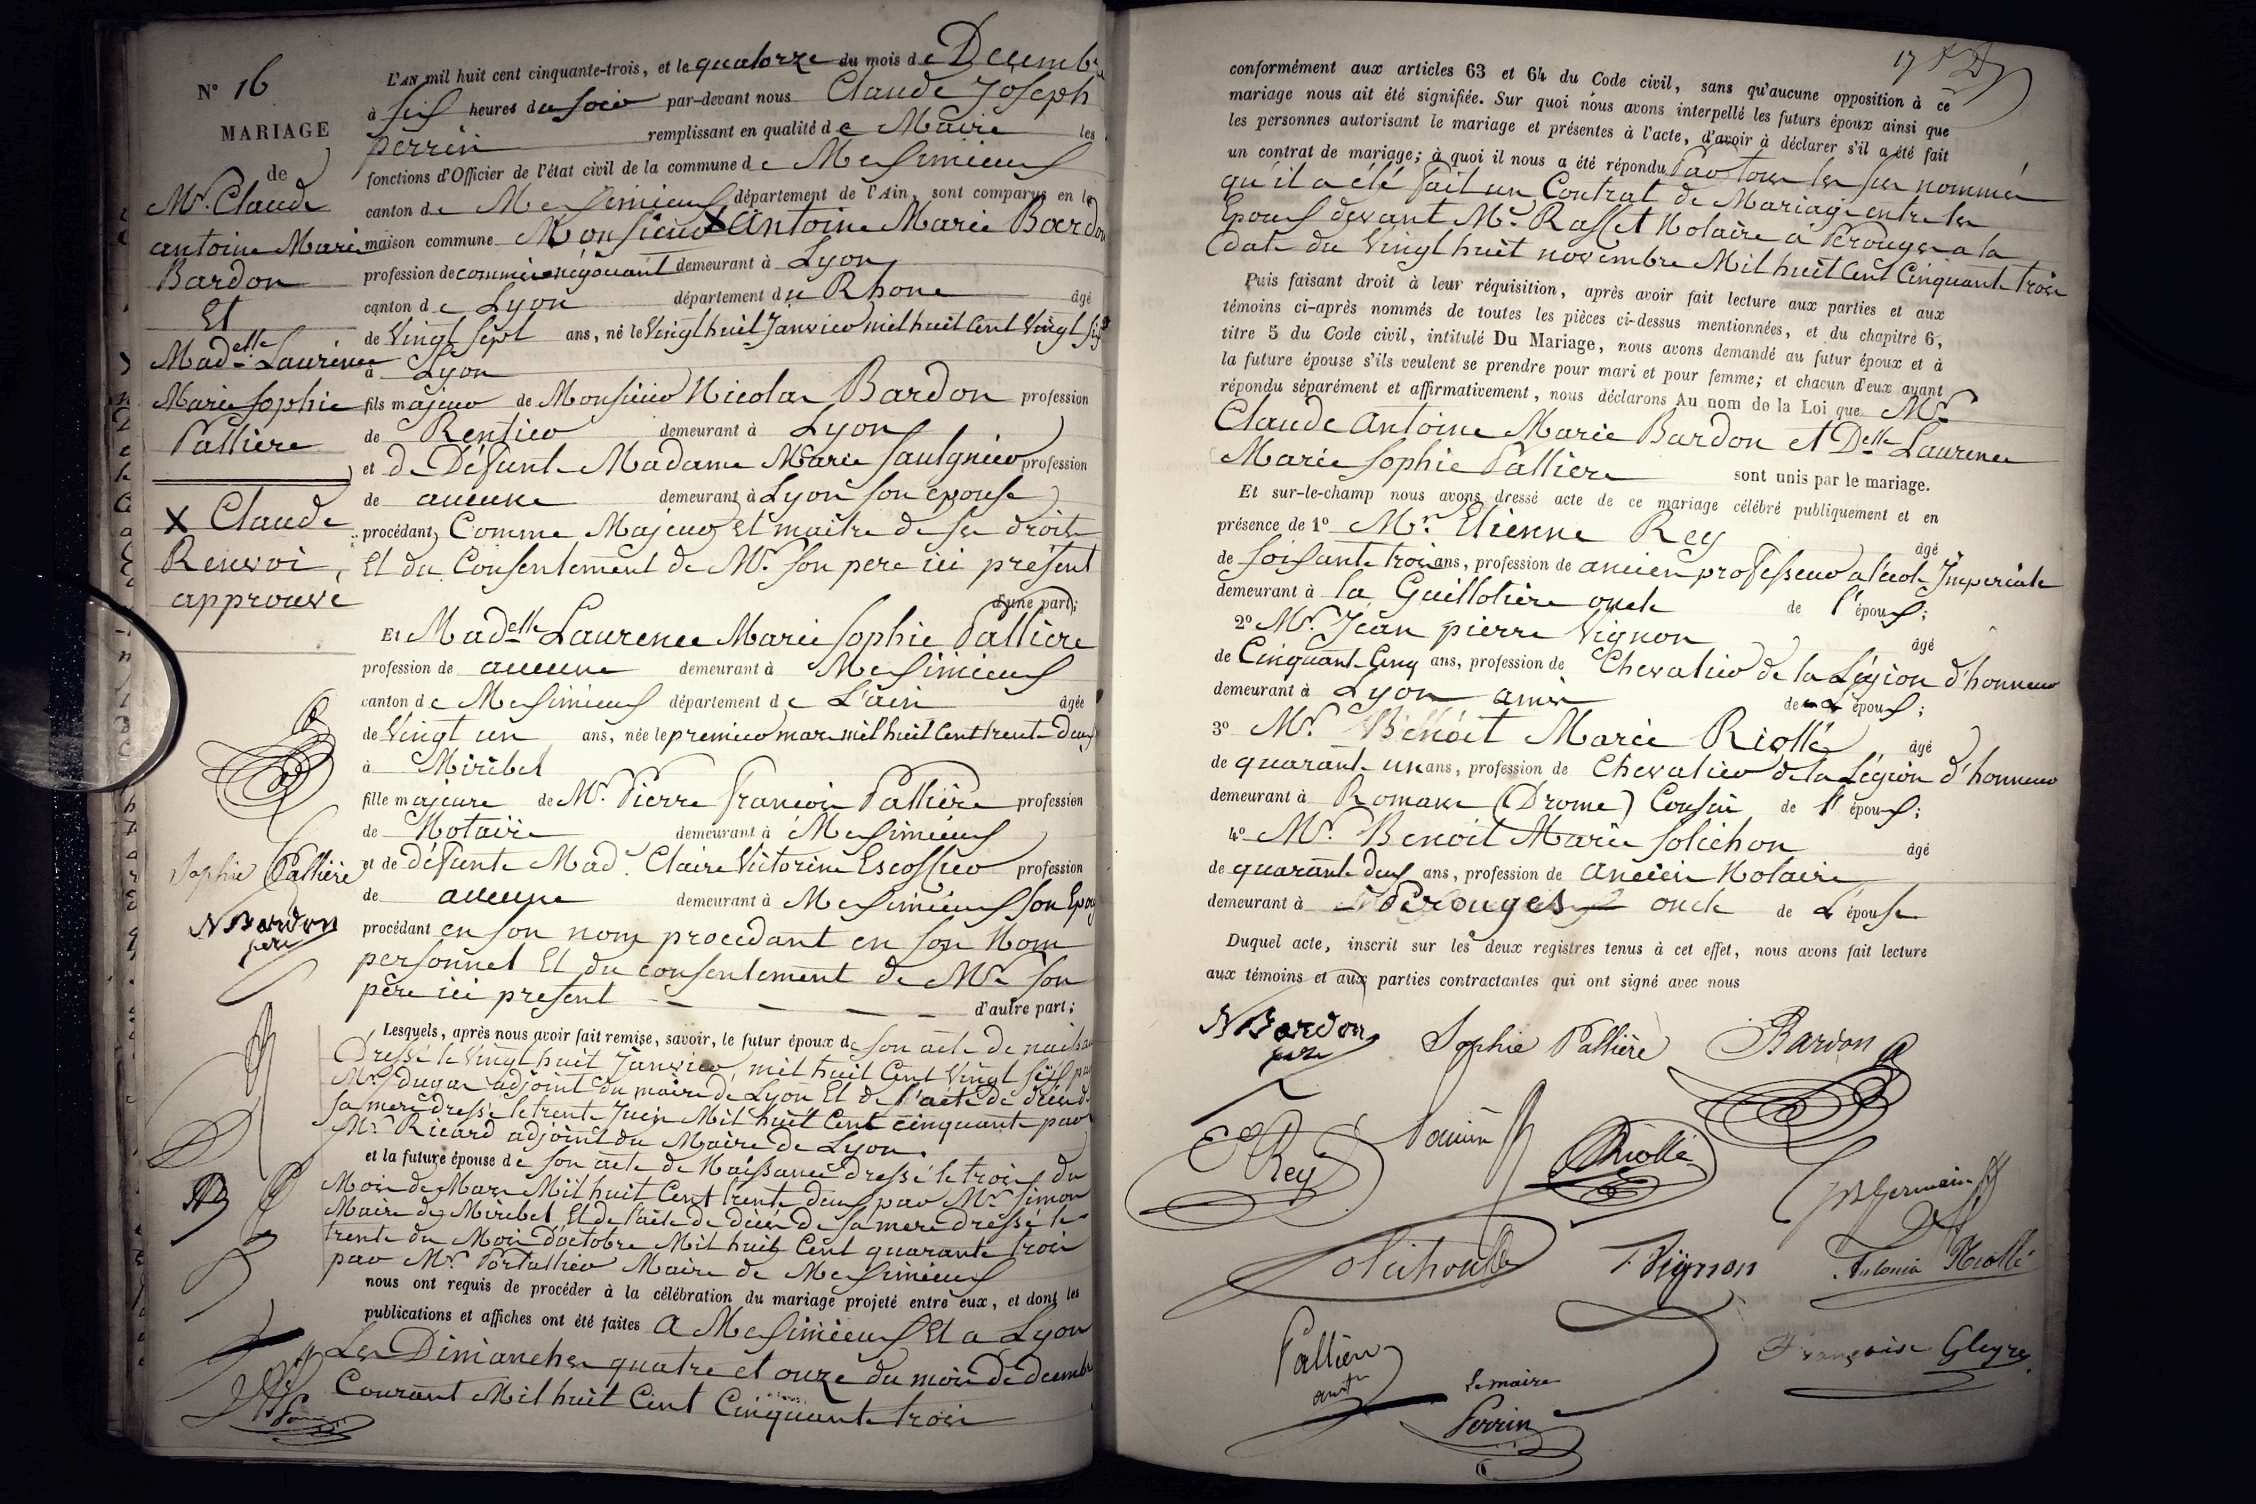 N° 16
MARIAGE
de
Mr. Claude
antoine Marie
Bardon
Et
Madelle Laurence
Marie Sophie
Pallière
X Claude
Renvoi
approuvé
Sophie Pallière
N Bardon
père
L'AN mil huit cent cinquante-trois, et le quatorze du mois de Décembre
à six heures du soir par-devant nous Claude Joseph
perrin remplissant en qualité de Maire les
fonctions d'Officier de l'état civil de la commune de Meximieux
canton de Meximieux département de l'Ain, sont comparus en la
maison commune Monsieur X Antoine Marie Bardon
profession de commis négociant demeurant à Lyon
canton de Lyon département du Rhone âgé
de Vingt sept ans, né le Vingt huit Janvier mil huit Cent Vingt six
à Lyon
fils majeur de Monsieur Nicolas Bardon profession
de Rentier demeurant à Lyon
et de Défunte Madame Marie Saulgnier profession
de aucune demeurant à Lyon son epouse
procédant Comme Majeur Et maître de ses droits
Et du Consentement de Mr. Son pere ici présent
d'une part;
Et Madelle Laurence Marie Sophie Pallière
profession de aucune demeurant à Meximieux
canton de Meximieux département de L'ain âgée
de Vingt un ans, née le premier mars mil huit Cent trente Deux
à Miribel
fille majeure de Mr. Pierre François Pallière profession
de Notaire demeurant à Meximieux
et de défunte Mad. Claire Victorine Escoffier profession
de aucune demeurant à Meximieux son Epouse
procédant en son nom procedant en son Nom
personnel Et du consentement de Mr. Son
père ici present
d'autre part;
Lesquels, après nous avoir fait remise, savoir, le futur époux de son acte de naissance
Dressé le Vingt huit Janvier, mil huit Cent Vingt six par
Mr. dugas adjoint du maire de Lyon Et de l'acte de décès de
sa mere dressé le trente Juin Mil huit Cent cinquante par
Mr. Ricard adjoint du Maire de Lyon.
et la future épouse de son acte de Naissance dressé le trois du
Mois de Mars Mil huit Cent trente deux par Mr. Simon
Maire de Miribel Et de l'acte de décès de sa mere dressé le
trente du Mois d'octobre Mil huit Cent quarante trois
par Mr. Portallier Maire de Meximieux
nous ont requis de procéder à la célébration du mariage projeté entre eux, et dont les
publications et affiches ont été faites a Meximieux Et a Lyon
Les Dimanches quatre et onze du mois de decembre
Courant Mil huit Cent Cinquante trois
17
conformément aux articles 63 et 64 du Code civil, sans qu'aucune opposition à ce
mariage nous ait été signifiée. Sur quoi nous avons interpellé les futurs époux ainsi que
les personnes autorisant le mariage et présentes à l'acte, d'avoir à déclarer s'il a été fait
un contrat de mariage; à quoi il nous a été répondu Par tous les sus nommés
qu'il a été fait un Contrat de Mariage entre les
Epoux devant Mr. Rasset Notaire à Pérouges a la
date du Vingt huit novembre Mil huit Cent Cinquante trois
Puis faisant droit à leur réquisition, après avoir fait lecture aux parties et aux
témoins ci-après nommés de toutes les pièces ci-dessus mentionnées, et du chapitre 6,
titre 5 du Code civil, intitulé Du Mariage, nous avons demandé au futur époux et à
la future épouse s'ils veulent se prendre pour mari et pour femme; et chacun d'eux ayant
répondu séparément et affirmativement, nous déclarons Au nom de la Loi que Mr.
Claude Antoine Marie Bardon et Delle Laurence
Marie Sophie Pallière sont unis par le mariage.
Et sur-le-champ nous avons dressé acte de ce mariage célébré publiquement et en
présence de 1° Mr. Etienne Rey âgé
de soixante trois ans, profession de ancien professeur a l'ecole Imperiale
demeurant à la Guillotière oncle de l'époux;
2° Mr. Jean pierre Vignon âgé
de Cinquante Cinq ans, profession de Chevalier de la Légion d'honneur
demeurant à Lyon ami de époux;
3° Mr. Benoit Marie Riollé âgé
de quarante un ans, profession de Chevalier de la Légion d'honneur
demeurant à Romans (Drome) Cousin de l'époux;
4° Mr. Benoit Marie Solichon âgé
de quarante deux ans, profession de Ancien Notaire
demeurant à Pérouges oncle de L'épouse
Duquel acte, inscrit sur les deux registres tenus à cet effet, nous avons fait lecture
aux témoins et aux parties contractantes qui ont signé avec nous
N Bardon
père
Sophie Pallière
Bardon
E Rey
Riollé
JB Germain
Solichon
P. Vignon
Antonia Riollé
Pallière
Françoise Gleyre
Le maire
Perrin